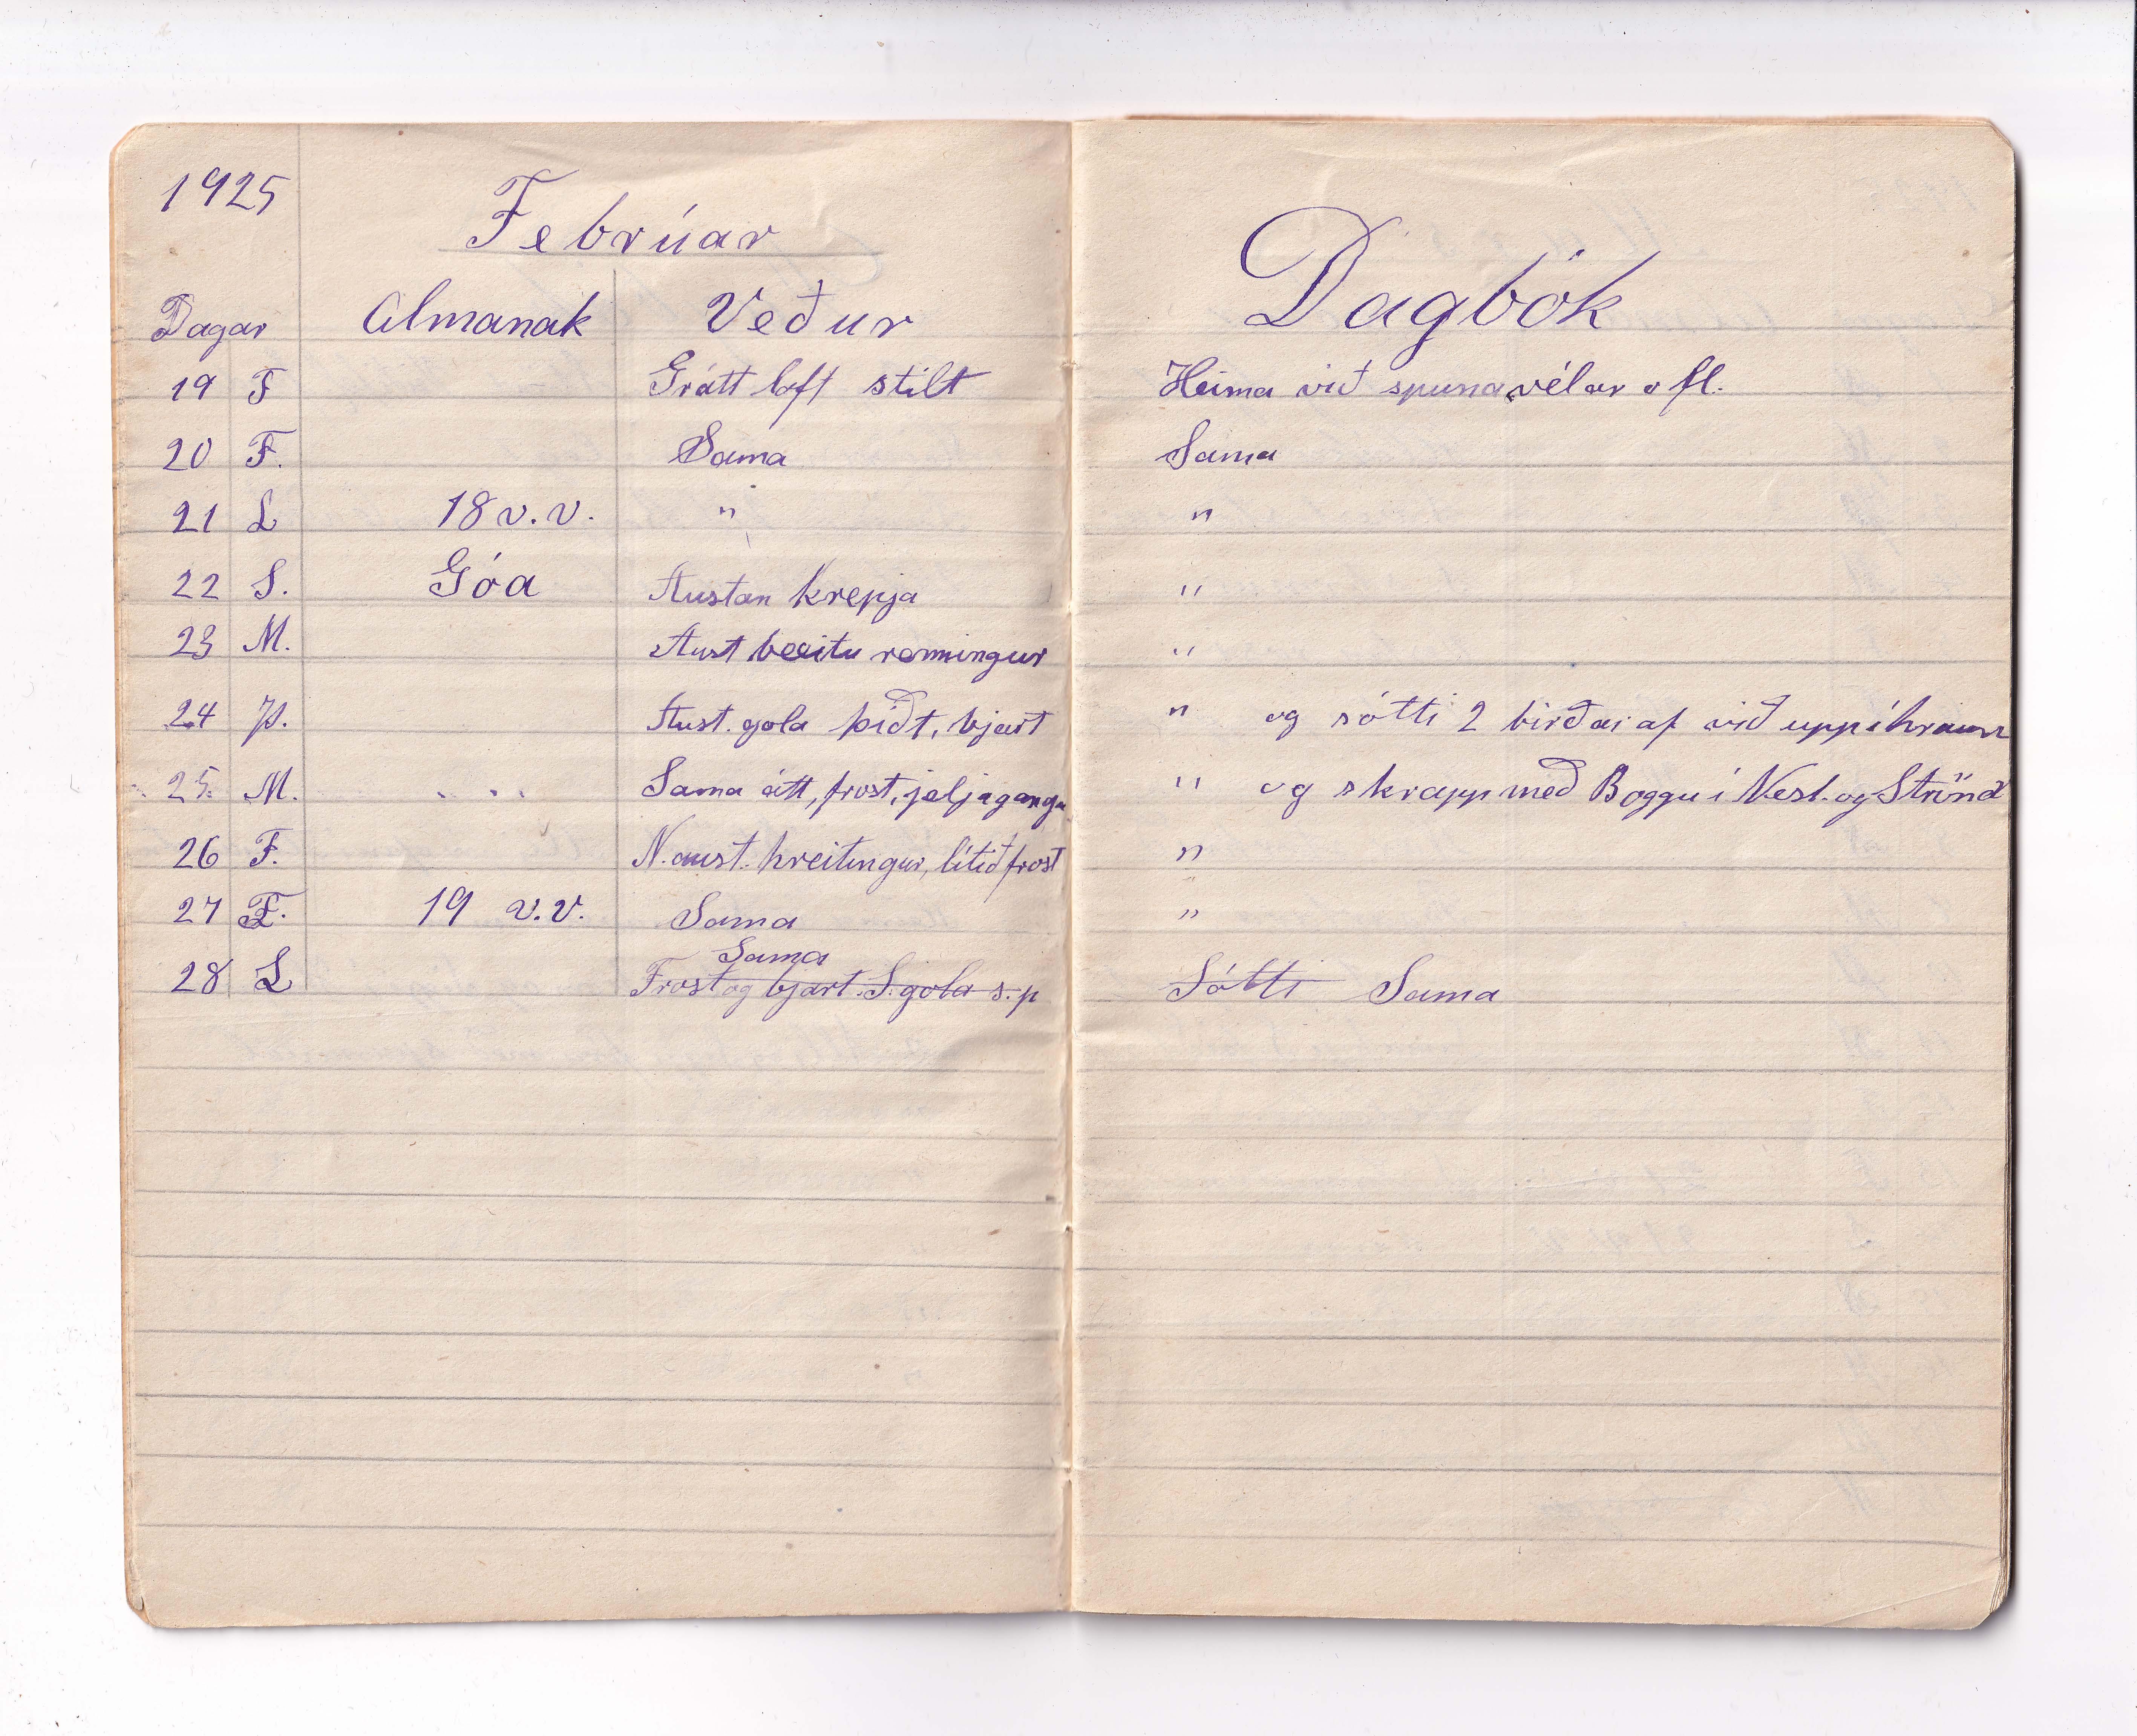 1925
Febrúar
Dagar Almanak Veður Dagbók
19 F Grátt loft stilt Heima við spunavélar o fl.
20 F. Sama Sama
21 L 18 v.v. " "
22 S. Góa Austan krepja "
23 M. Aust renningur "
24 Þ. Aust. gola þiðt, bjart " og sótti 2 birðar af við uppí hraun
25. M. Sama átt, frost, jeljaganga " og skrapp með Boggu í Nesl. og Strönd
26 F. N.aust. hreitingur, lítið frost "
27 F. 19 v.v. Sama "
Sama
28 L Frost og bjart. S. gola s. p Sótti Sama